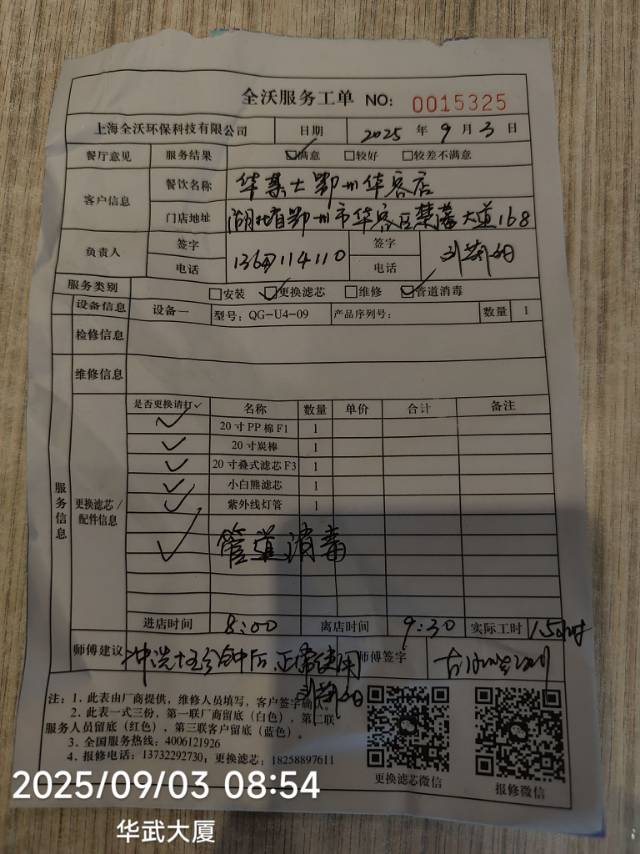 全沃服务工单 NO: 0015325
上海全沃环保科技有限公司 日期 2025 年 9 月 3 日
餐厅意见 服务结果 满意 较好 较差不满意
客户信息 餐饮名称 华莱士鄂州华容店
门店地址 湖北省鄂州市华容区楚藩大道168
负责人 签字 签字
电话 电话
服务类别 安装 更换滤芯 维修 管道消毒
设备信息 设备一 型号: QG-U4-09 产品序列号: 数量 1
检修信息
维修信息
服务信息 更换滤芯/配件信息 是否更换请打✓ 名称 数量 单价 合计 备注
✓ 20寸PP棉F1 1
✓ 20寸炭棒 1
✓ 20寸叠式滤芯F3 1
✓ 小白熊滤芯 1
✓ 紫外线灯管 1
✓ 管道消毒
进店时间 8:00 离店时间 9:30 实际工时 1.5小时
师傅建议 冲洗十五分钟后正常使用 师傅签字
注: 1. 此表由厂商提供, 维修人员填写, 客户签字确
2. 此表一式三份, 第一联厂商留底(白色), 第二联
服务人员留底(红色), 第三联客户留底(蓝色)。
3. 全国服务热线: 4006121926
4. 报修电话: 13732292730; 更换滤芯: 18258897611
更换滤芯微信 报修微信
2025/09/03 08:54
华武大厦